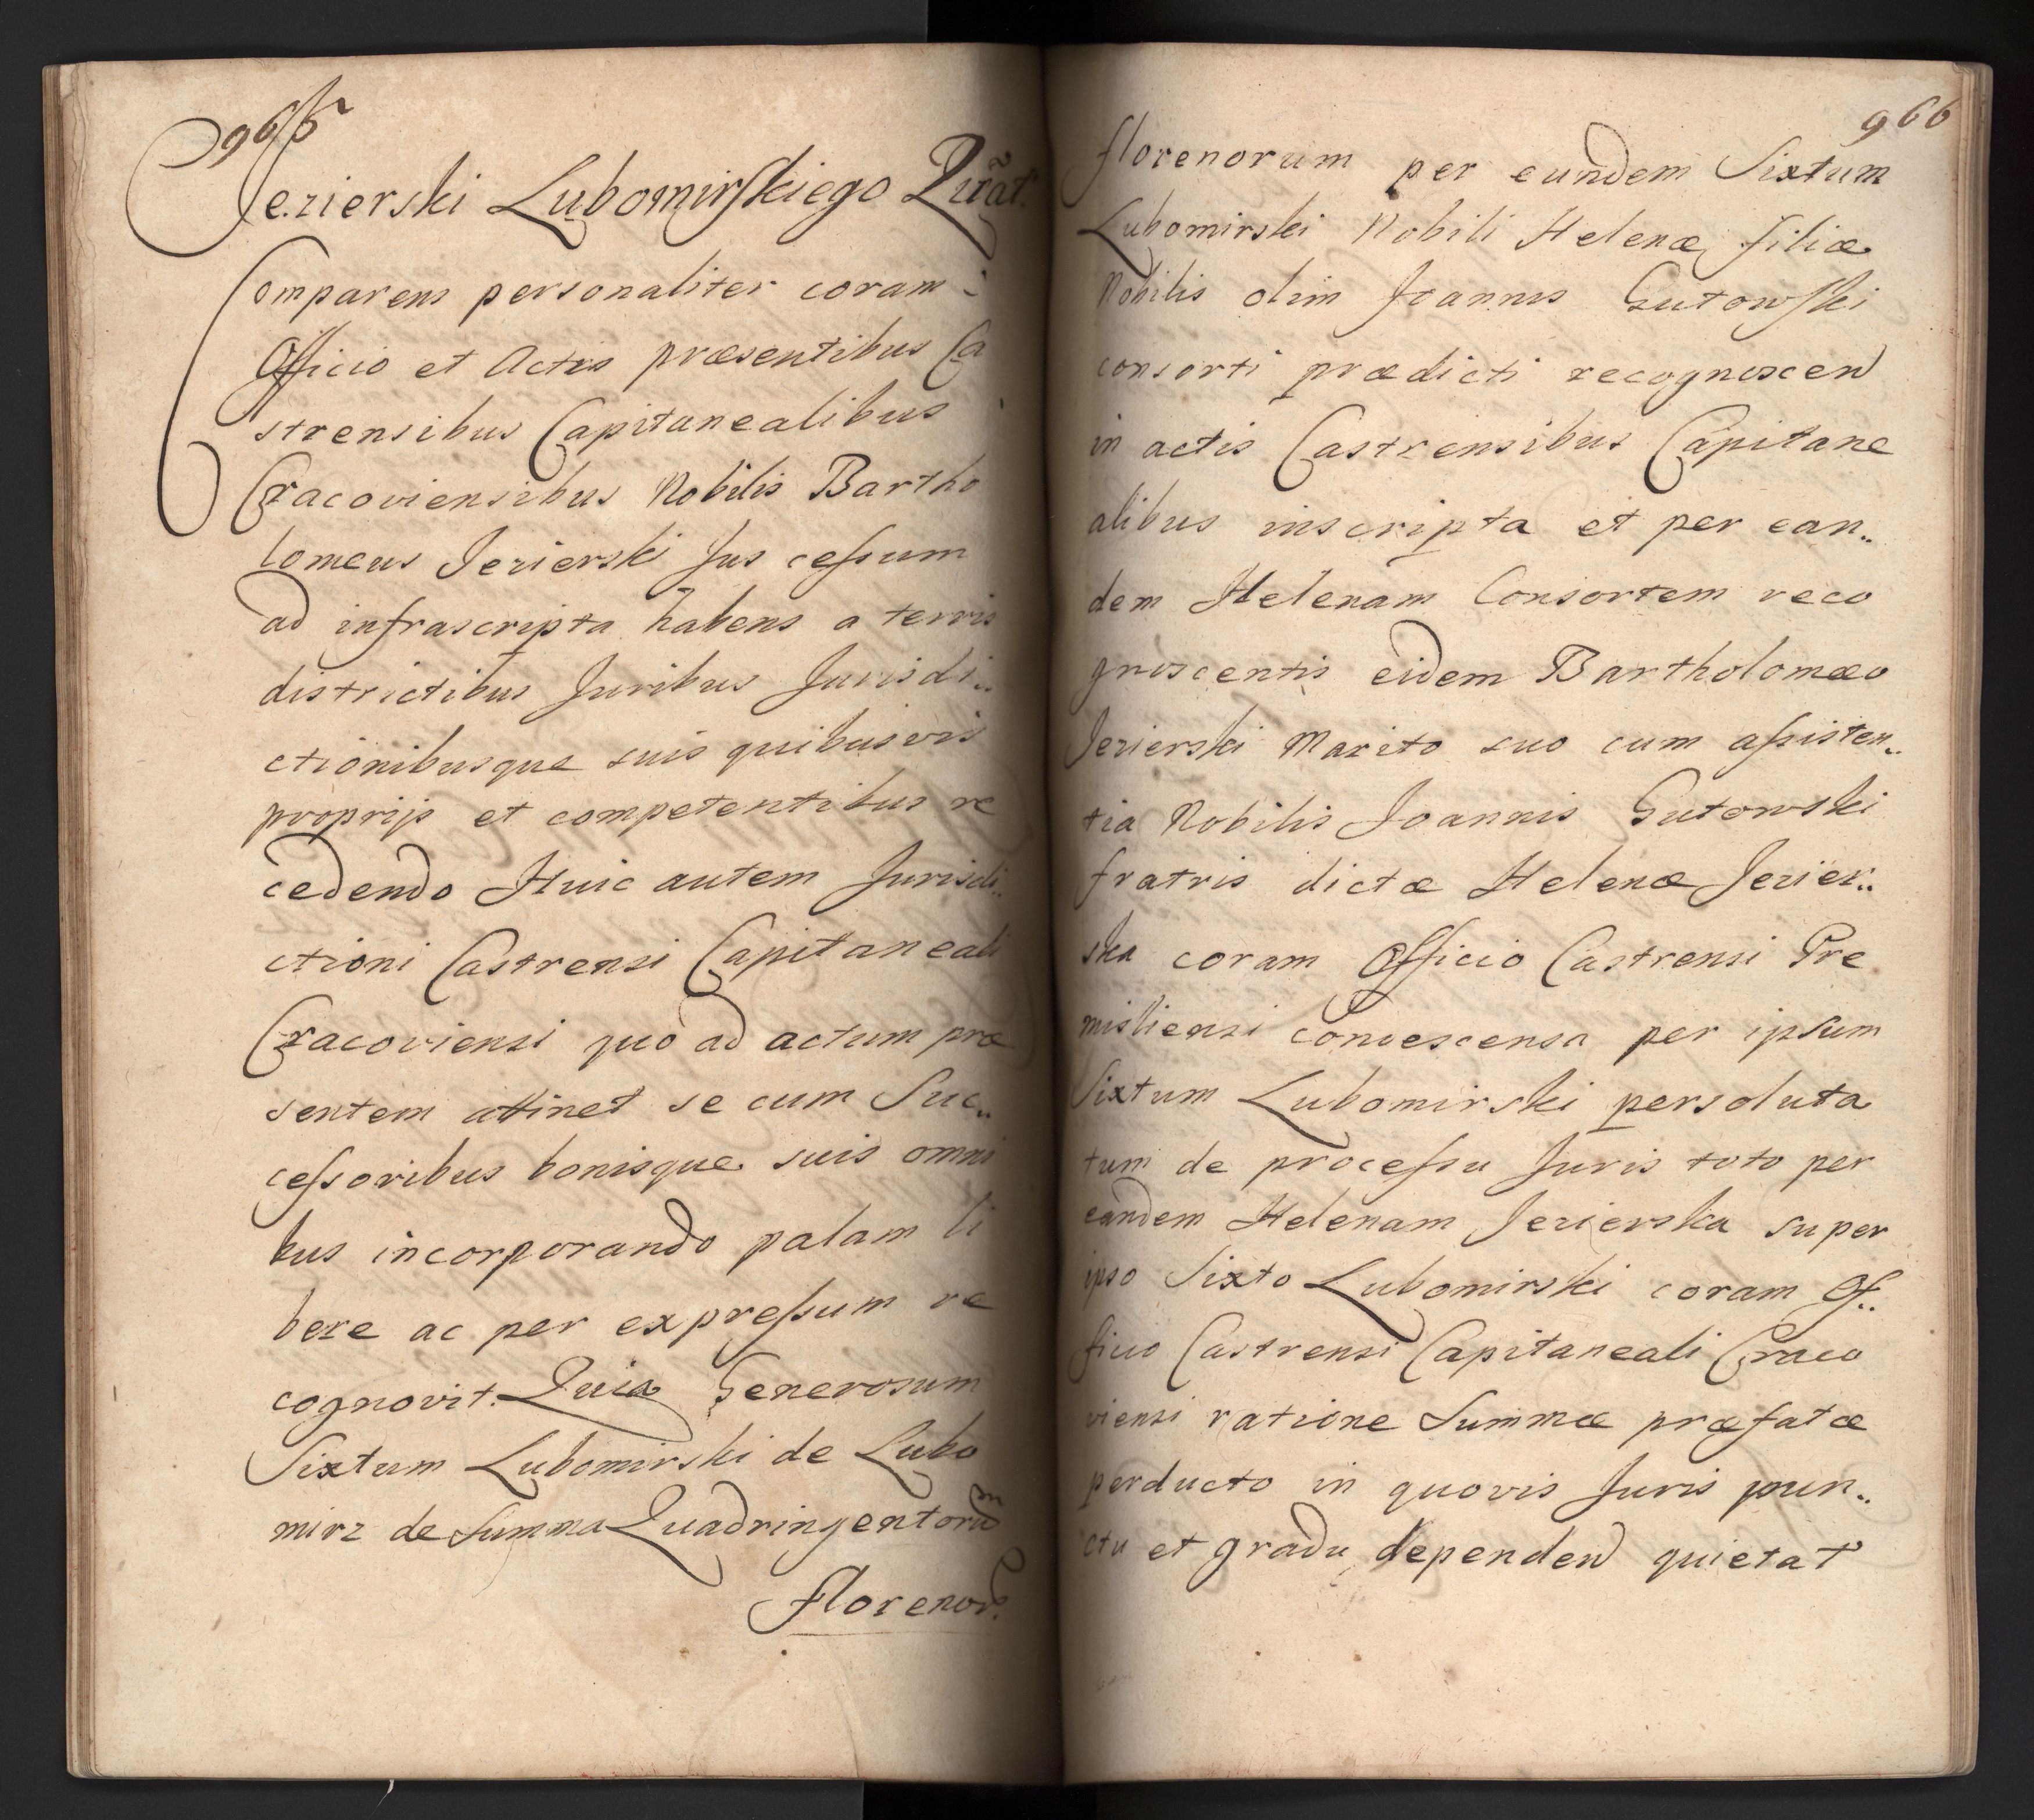 965
Jezierski Lubomirskiego Quat.
Comparens personaliter coram
Officio et Actis præsentibus Ca
strensibus Capitanealibus
Cracoviensibus Nobilis Bartho
lomeus Jezierski Jus cessum
ad infrascripta habens a terris
districtibus Juribus Jurisdi..
ctionibusque suis quibusvis
proprijs et competentibus re
cedendo Huic autem Jurisdi..
ctioni Castrensi Capitaneali
Cracoviensi quo ad actum præ
sentem attinet se cum Suc..
cessoribus bonisque suis omni
bus incorporando palam li
bere ac per expressum re
cognovit. Quia Generosum
Sixtum Lubomirski de Lubo
mirz de Summa Quadringentorum
florenor.
966
florenorum per eundem Sixtum
Lubomirski Nobili Helenæ filiæ
Nobilis olim Joannis Gutowski
consorti prædicti recognoscen
in actis Castrensibus Capitane
alibus inscripta et per ean..
dem Helenam Consortem reco
gnoscentis eidem Bartholomæo
Jezierski Marito suo cum assisten..
tia Nobilis Joannis Gutowski
fratris dictæ Helenæ Jezier..
ska coram Officio Castrensi Pre
misliensi condescensa per ipsum
Sixtum Lubomirski persoluta
tum de processu Juris toto per
eandem Helenam Jezierska super
ipso Sixto Lubomirski coram Of..
ficio Castrensi Capitaneali Craco
viensi ratione Summæ præfatæ
perducto in quovis Juris pun..
ctu et gradu dependen quietat